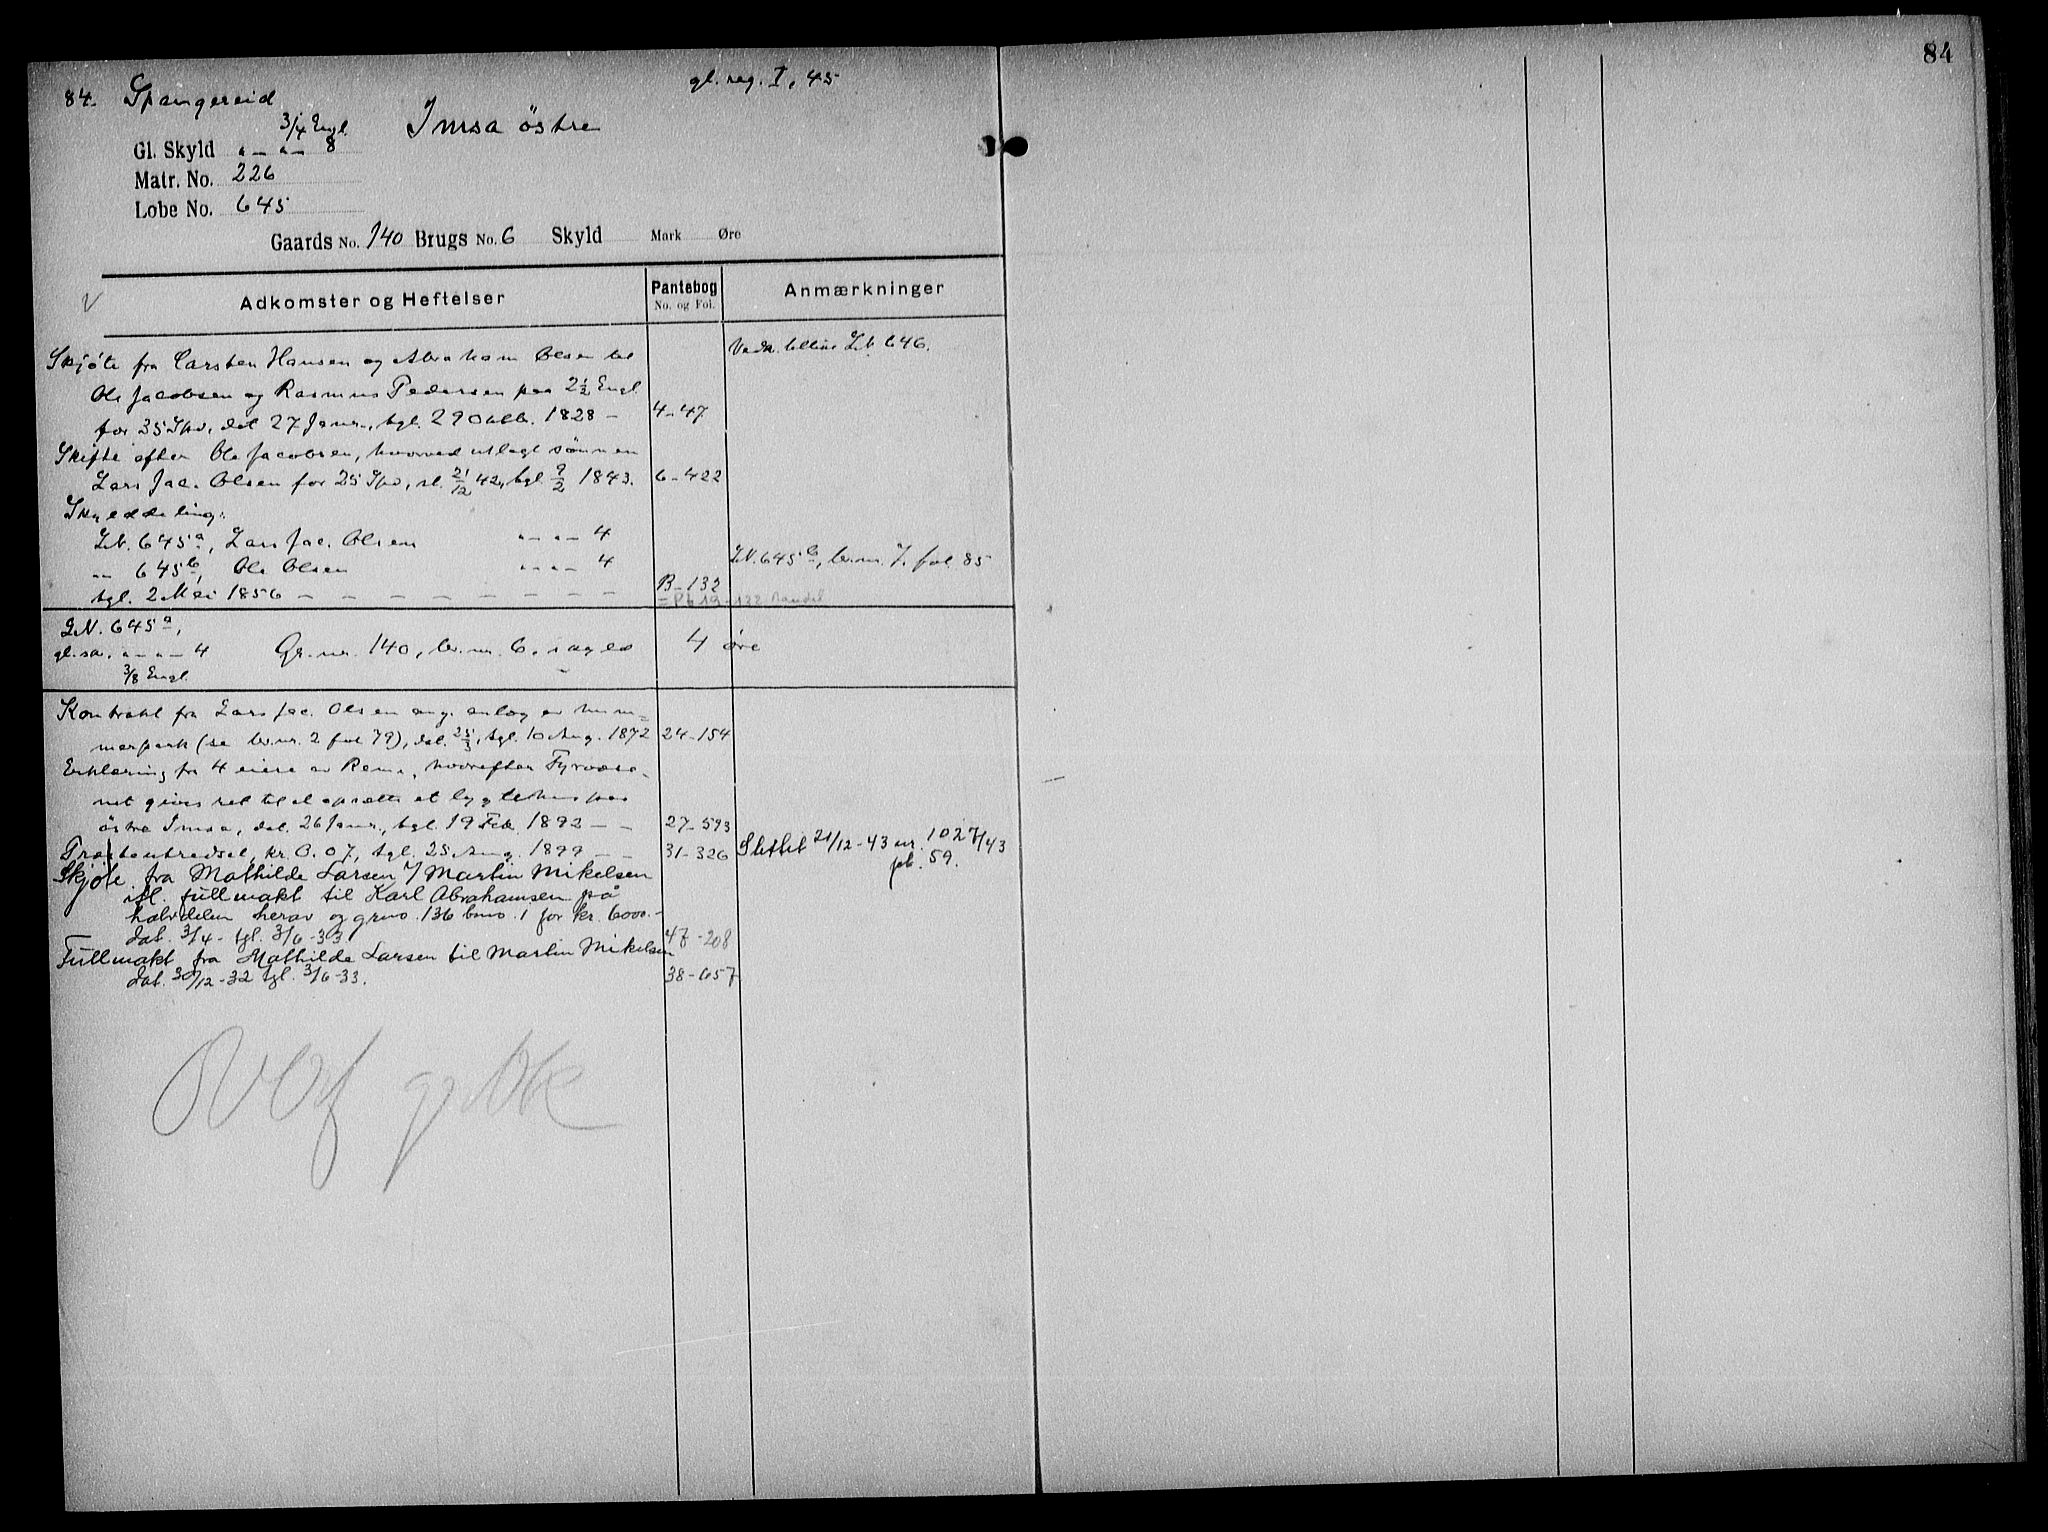 84. Spangereid
gl. reg. I, 45
84
3/4 Engl.
Imsa östre
Gl. Skyld " – " – 8
Matr. No. 226
Løbe No. 645
Gaards No. 140 Brugs No. 6 Skyld Mark Øre
Adkomster og Heftelser
Pantebog
No. og Fol.
Anmærkninger
Skjöte fra Carsten Hansen og Abraham Olsen til
Vedk. tillike LN. 646.
Ole Jacobsen og Rasmus Pedersen paa 2 1/2 Engl.
for 35 Spd., dat. 27 Janr., tgl. 29 Oktb. 1828 – 4-47.
Skifte efter Ole Jacobsen, hvorved utlagt sönnen
Lars Jac. Olsen for 25 Spd., sl. 21/12 42, tgl. 9/2 1843. 6-422
Skylddeling:
LN. 645 a, Lars Jac. Olsen " – " – 4
" – 645 b, Ole Olsen " – " – 4
LN. 645 b, br.nr. 7. fol. 85
tgl. 2 Mai 1856 – – – – – – – – B-132
= Pb 19-132 Mandal
LN. 645 a,
gl. sk. " – " – 4 Gr. nr. 140, br. nr. 6, 4 øre
3/8 Engl.
Kontrakt fra Lars Jac. Olsen ang. anlæg av hum=
merpark (se br.nr. 2 fol 79), dat. 25/3, tgl. 10 Aug. 1872 24-154
Erklæring fra 4 eiere av , hvorefter Fyrvæse-
net gives ret til at oprette et lygtehus paa
östre Imsa, dat. 26 Janr., tgl. 19 Feb. 1892 – – 27-593
Slettet 21/12-43 nr. 1027/43
pb. 59.
, kr. 0.07, tgl. 25 Aug. 1899 – – 31-326
Skjöte fra Mathilde Larsen v/ Martin Mikelsen
ifl. fullmakt til Karl Abrahamsen på
halvdelen herav og grno. 136 bno. 1 for kr. 6000.-
dat. 3/4 - tgl. 3/6-33. 47-208
Fullmakt fra Mathilde Larsen til Martin Mikelsen
dat. 30/12-32 tgl. 3/6-33. 38-657